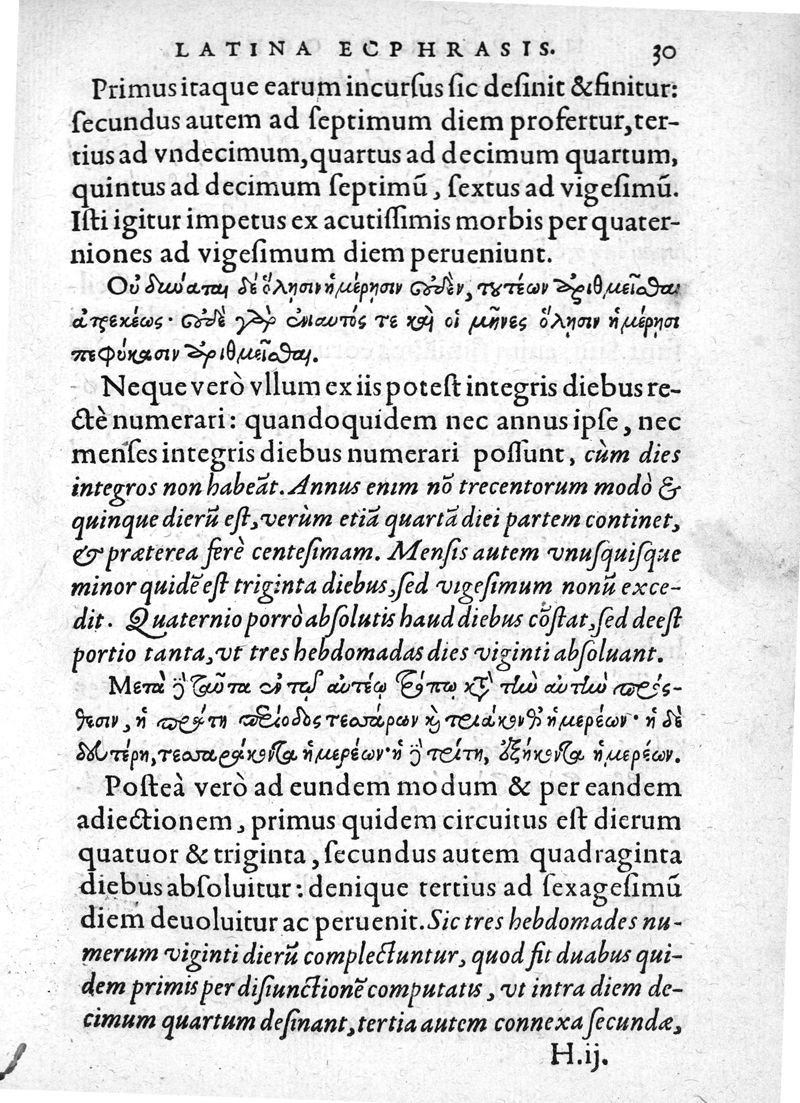 LATINA ECPHRASIS. 30
Primus itaque earum incurſus ſic deſinit & finitur:
ſecundus autem ad ſeptimum diem profertur, ter-
tius ad vndecimum, quartus ad decimum quartum,
quintus ad decimum ſeptimũ, ſextus ad vigeſimũ.
Iſti igitur impetus ex acutiſſimis morbis per quater-
niones ad vigeſimum diem perueniunt.
Οὐ δύναται δὲ ὅλησιν ἡμέρησιν οὐδὲν, τουτέων ἀριθμεῖσθαι
ἀτρεκέως· οὐδὲ γὰρ ἐνιαυτός τε καὶ οἱ μῆνες ὅλησιν ἡμέρησι
πεφύκασιν ἀριθμεῖσθαι.
Neque verò vllum ex iis poteſt integris diebus re-
ctè numerari: quandoquidem nec annus ipſe, nec
menſes integris diebus numerari poſſunt, cùm dies
integros non habeãt. Annus enim nõ trecentorum modò &
quinque dierũ eſt, verùm etiã quartã diei partem continet,
& præterea ferè centeſimam. Menſis autem vnuſquiſque
minor quidẽ eſt triginta diebus, ſed vigeſimum nonũ exce-
dit. Quaternio porrò abſolutis haud diebus cõſtat, ſed deeſt
portio tanta, vt tres hebdomadas dies viginti abſoluant.
Μετὰ δὲ ταῦτα ἐν τῷ αὐτέῳ τρόπῳ κατὰ τὴν αὐτὴν πρός-
θεσιν, ἡ πρώτη περίοδος τεσσάρων καὶ τριάκοντα ἡμερέων· ἡ δὲ
δευτέρη, τεσσαράκοντα ἡμερέων· ἡ δὲ τρίτη, ἑξήκοντα ἡμερέων.
Poſteà verò ad eundem modum & per eandem
adiectionem, primus quidem circuitus eſt dierum
quatuor & triginta, ſecundus autem quadraginta
diebus abſoluitur: denique tertius ad ſexageſimũ
diem deuoluitur ac peruenit. Sic tres hebdomades nu-
merum viginti dierũ complectuntur, quod fit duabus qui-
dem primis per diſiunctionẽ computatis, vt intra diem de-
cimum quartum deſinant, tertia autem connexa ſecundæ,
H.ij.